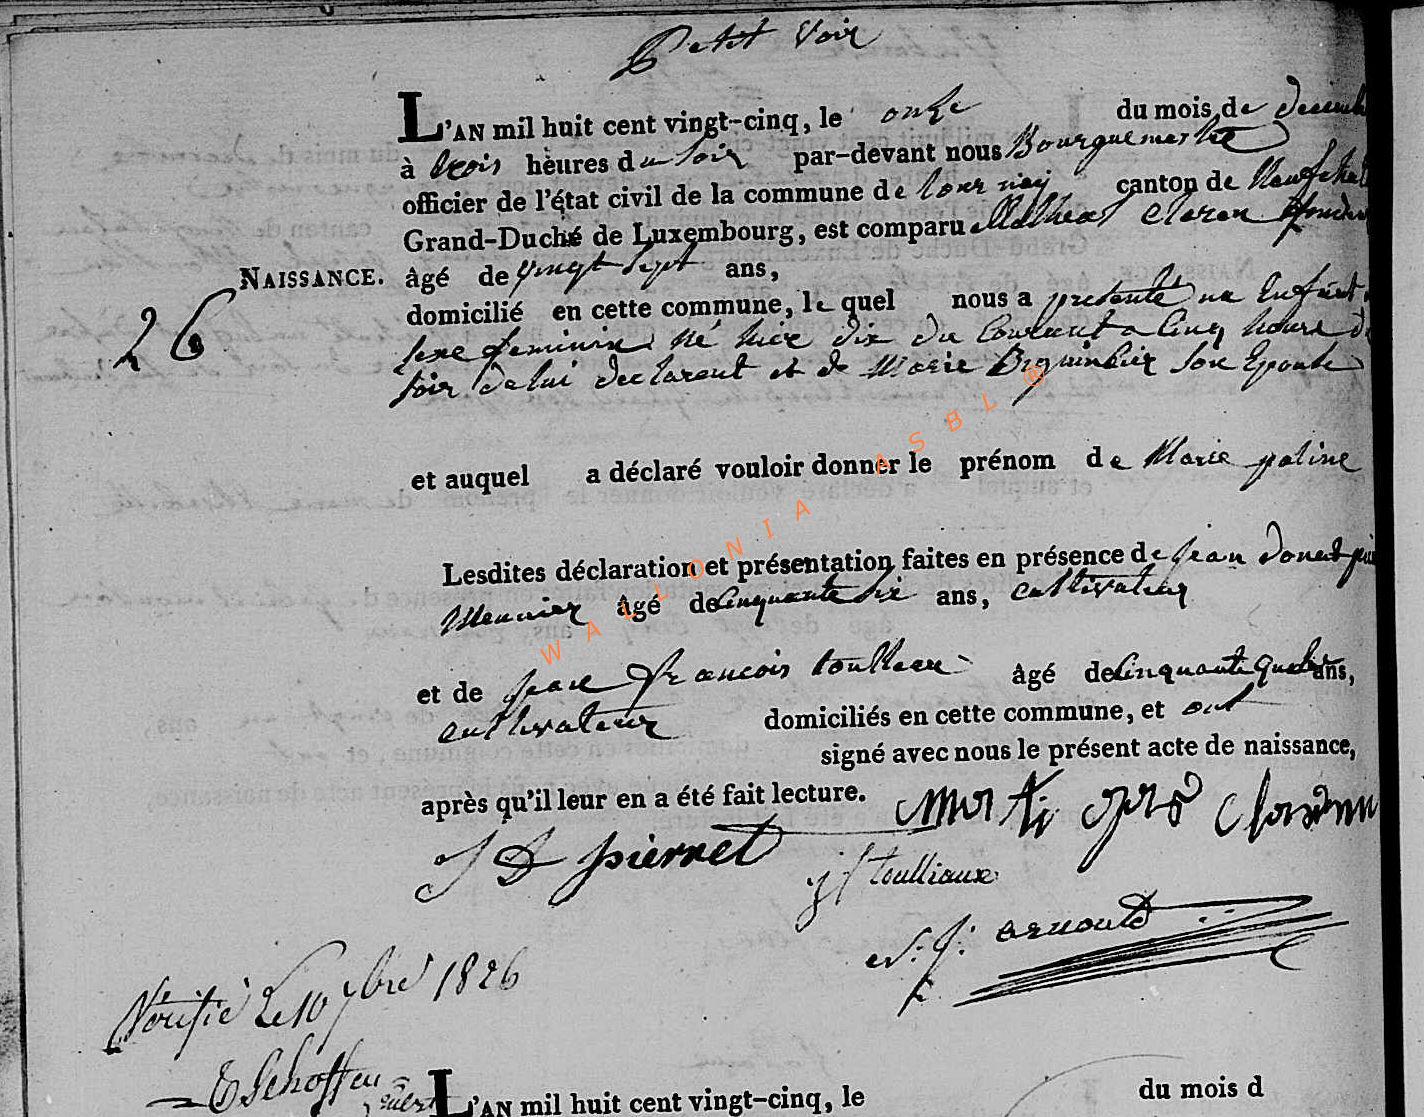 Petit Voir
L'AN mil huit cent vingt-cinq, le onze du mois de decemb
à trois heures du soir par-devant nous Bourguemestre
officier de l'état civil de la commune de tournay canton de Neufchat
Grand-Duché de Luxembourg, est comparu Mathieu
NAISSANCE. âgé de vingt sept ans,
domicilié en cette commune, le quel nous a presenté un Enfant
26
sexe feminin né hier dix du Courant a Cinq heure d
soir de lui declarent et de Marie son Epouse
et auquel a déclaré vouloir donner le prénom de Marie paline
Lesdites déclaration et présentation faites en présence de jean donat
âgé de Cinquante six ans, cultivateur
et de jean francois toulleau âgé de Cinquante quatre ans,
cultivateur domiciliés en cette commune, et ont
signé avec nous le présent acte de naissance,
après qu'il leur en a été fait lecture.
J D pierret
j f toulliaux
arnould
Vérifié le 10 1826
L'AN mil huit cent vingt-cinq, le du mois d
WALLONIA ASBL @